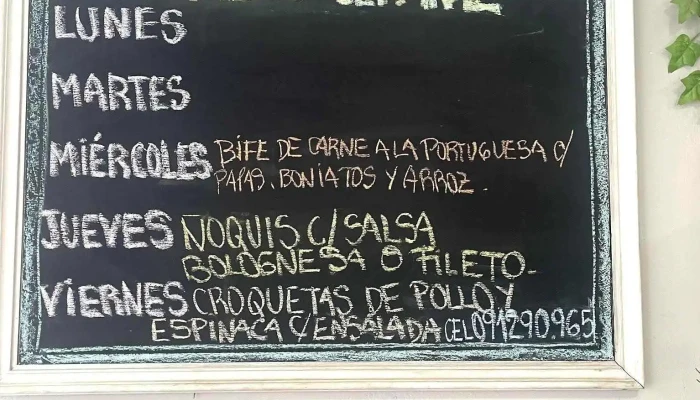 LUNES
MARTES
MIÉRCOLES BIFE DE CARNE A LA PORTUGUESA C/
PAPAS, BONIATOS Y ARROZ.
JUEVES ÑOQUIS C/SALSA
BOLOGNESA O FILETO-
VIERNES CROQUETAS DE POLLO Y
ESPINACA C/ENSALADA CEL091290.965